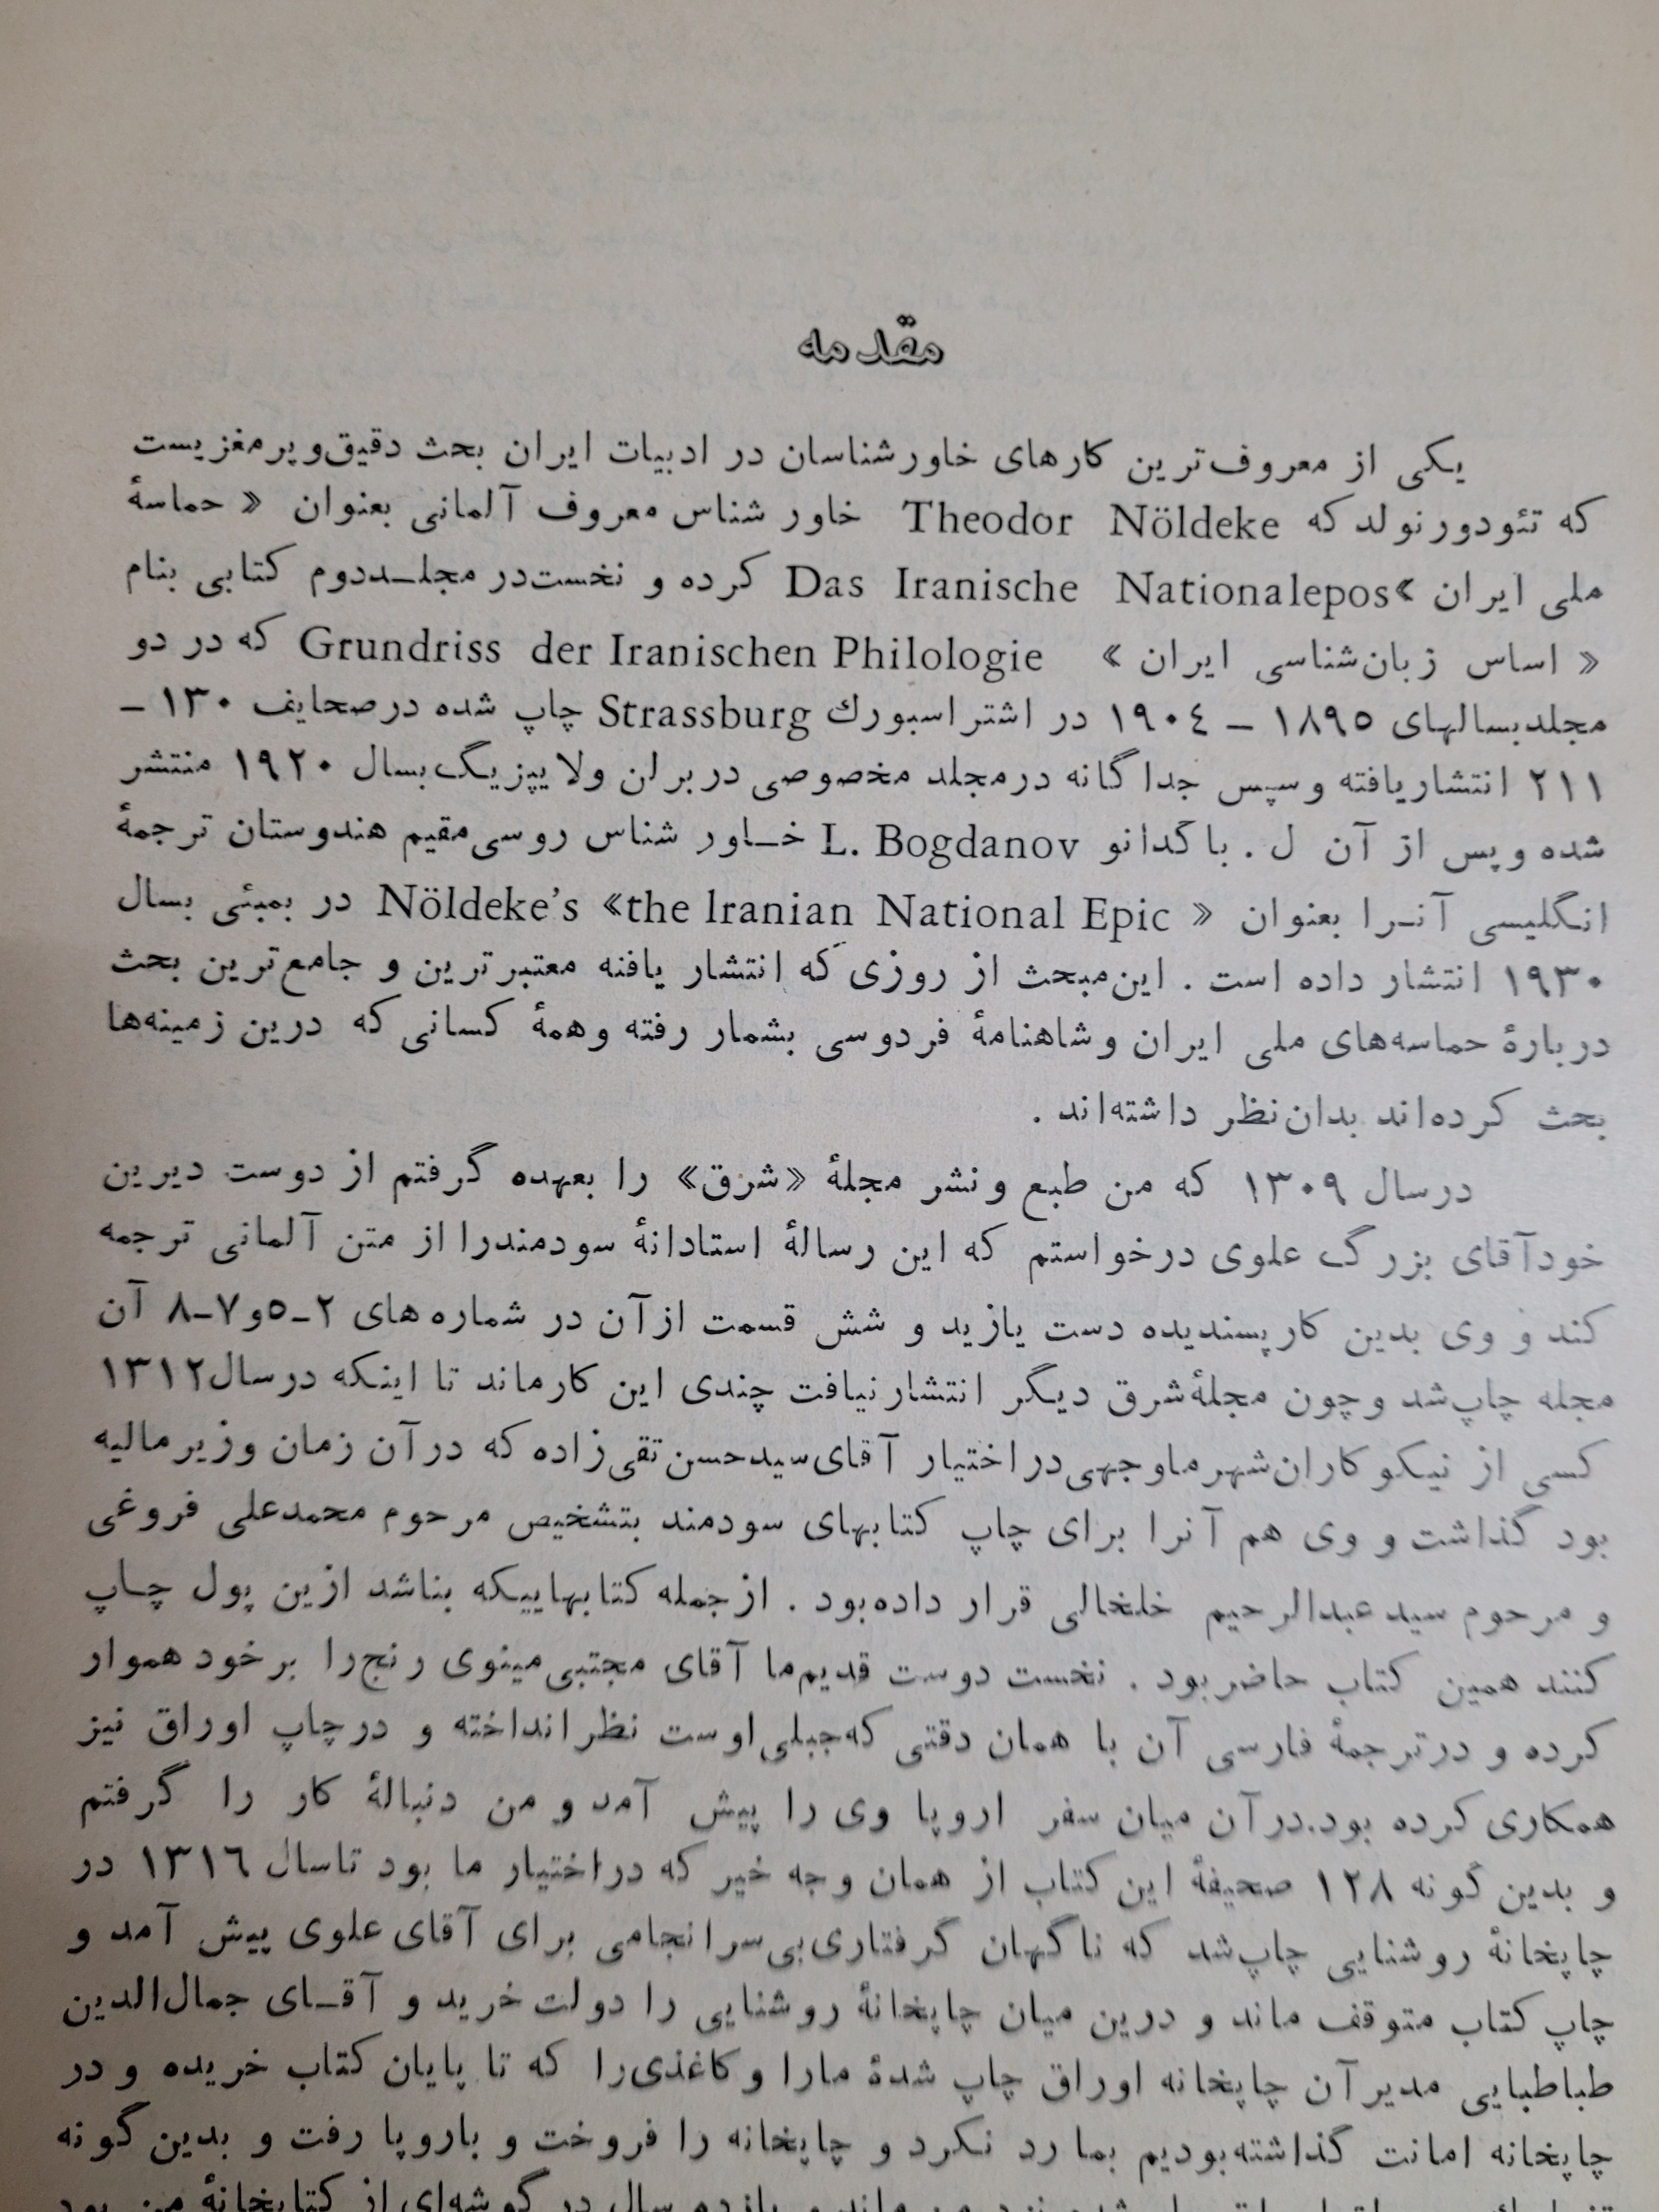 مقدمه
یکی از معروف‌ترین کارهای خاورشناسان در ادبیات ایران بحث دقیق‌وپرمغزیست
که تئودورنولدکه Theodor Nöldeke خاور شناس معروف آلمانی بعنوان « حماسهٔ
ملی ایران »Das Iranische Nationalepos کرده و نخست‌در مجلـددوم کتابی بنام
« اساس زبان‌شناسی ایران » Grundriss der Iranischen Philologie که در دو
مجلدبسالهای ۱۸۹۵ – ۱۹۰٤ در اشتراسبورك Strassburg چاپ شده درصحایف ۱۳۰ –
۲۱۱ انتشاریافته وسپس جداگانه درمجلد مخصوصی دربرلن ولایپزیگ‌بسال ۱۹۲۰ منتشر
شده وپس از آن ل . باگدانو L. Bogdanov خـاور شناس روسی‌مقیم هندوستان ترجمهٔ
انگلیسی آنـرا بعنوان « Nöldeke's «the Iranian National Epic در بمبئی بسال
۱۹۳۰ انتشار داده است . این‌مبحث از روزی که انتشار یافنه معتبرترین و جامع‌ترین بحث
دربارهٔ حماسه‌های ملی ایران وشاهنامهٔ فردوسی بشمار رفته وهمهٔ کسانی که درین زمینه‌ها
بحث کرده‌اند بدان‌نظر داشته‌اند .
درسال ۱۳۰۹ که من طبع ونشر مجلهٔ «شرق» را بعهده گرفتم از دوست دیرین
خودآقای بزرگ علوی درخواستم که این رسالهٔ استادانهٔ سودمندرا از متن آلمانی ترجمه
کند و وی بدین کارپسندیده دست یازید و شش قسمت ازآن در شماره های ۲ـ۵و۷ـ۸ آن
مجله چاپ‌شد وچون مجلهٔ‌شرق دیگر انتشارنیافت چندی این کارماند تا اینکه درسال۱۳۱۲
کسی از نیکوکاران‌شهرماوجهی‌دراختیار آقای‌سیدحسن‌تقی‌زاده که درآن زمان وزیرمالیه
بود گذاشت و وی هم آنرا برای چاپ کتابهای سودمند بتشخیص مرحوم محمدعلی فروغی
و مرحوم سید عبدالرحیم خلخالی قرار داده‌بود . ازجمله کتابهاییکه بناشد ازین پول چـاپ
کنند همین کتاب حاضربود . نخست دوست قدیم‌ما آقای مجتبی‌مینوی رنج‌را برخودهموار
کرده و درترجمهٔ فارسی آن با همان دقتی که‌جبلی‌اوست نظرانداخته و درچاپ اوراق نیز
همکاری کرده بود.درآن میان سفر اروپا وی را پیش آمد و من دنبالهٔ کار را گرفتم
و بدین گونه ۱۲۸ صحیفهٔ این کتاب از همان وجه خیر که دراختیار ما بود تاسال ۱۳۱٦ در
چاپخانهٔ روشنایی چاپ‌شد که ناگهان گرفتاری‌بی‌سرانجامی برای آقای علوی پیش آمد و
چاپ کتاب متوقف ماند و درین میان چاپخانهٔ روشنایی را دولت خرید و آقـای جمال‌الدین
طباطبایی مدیرآن چاپخانه اوراق چاپ شدهٔ مارا وکاغذی‌را که تا پایان کتاب خریده و در
چاپخانه امانت گذاشته‌بودیم بما رد نکرد و چاپخانه را فروخت و باروپا رفت و بدین گونه